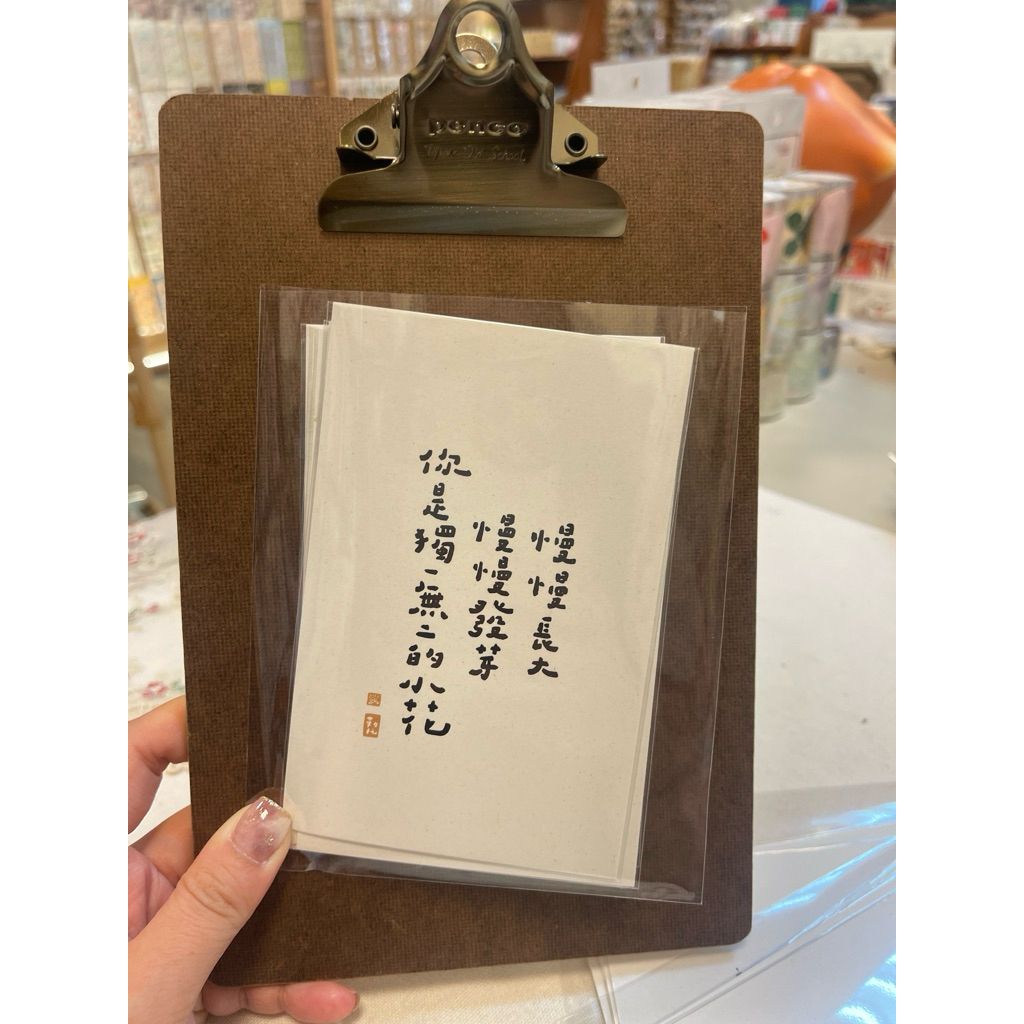 penco
慢慢長大
慢慢發芽
你是獨一無二的小花